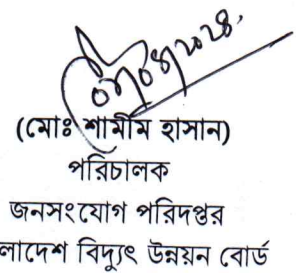 (মোঃ শামীম হাসান)
পরিচালক
জনসংযোগ পরিদপ্তর
লাদেশ বিদ্যুৎ উন্নয়ন বোর্ড